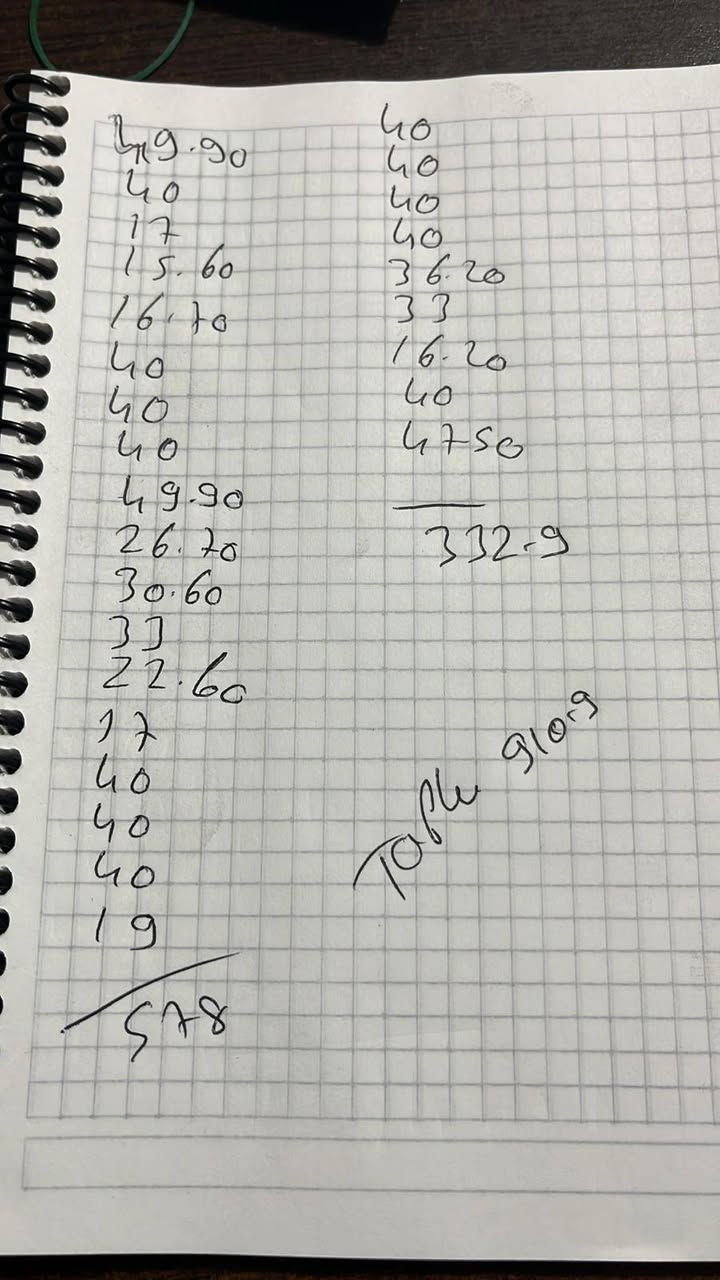 49.90
40
17
15.60
16.70
40
40
40
49.90
26.70
30.60
33
22.60
17
40
40
40
19
578
40
40
40
40
36.20
33
16.20
40
4750
332.9
910.9